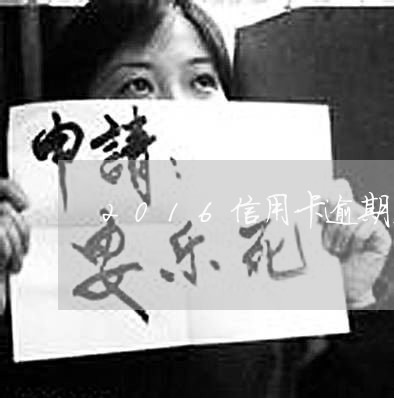 申請：
2016信用卡逾期
要乐死